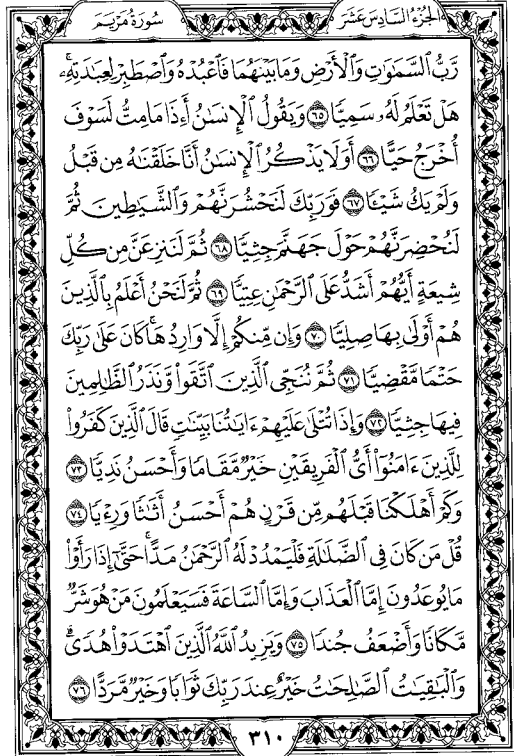 الجزء السادس عشر
سورة مريم
رَّبُّ ٱلسَّمَٰوَٰتِ وَٱلْأَرْضِ وَمَا بَيْنَهُمَا فَٱعْبُدْهُ وَٱصْطَبِرْ لِعِبَٰدَتِهِۦ ۚ
هَلْ تَعْلَمُ لَهُۥ سَمِيًّا ٦٥ وَيَقُولُ ٱلْإِنسَٰنُ أَءِذَا مَا مِتُّ لَسَوْفَ
أُخْرَجُ حَيًّا ٦٦ أَوَلَا يَذْكُرُ ٱلْإِنسَٰنُ أَنَّا خَلَقْنَٰهُ مِن قَبْلُ
وَلَمْ يَكُ شَيْـًٔا ٦٧ فَوَرَبِّكَ لَنَحْشُرَنَّهُمْ وَٱلشَّيَٰطِينَ ثُمَّ
لَنُحْضِرَنَّهُمْ حَوْلَ جَهَنَّمَ جِثِيًّا ٦٨ ثُمَّ لَنَنزِعَنَّ مِن كُلِّ
شِيعَةٍ أَيُّهُمْ أَشَدُّ عَلَى ٱلرَّحْمَٰنِ عِتِيًّا ٦٩ ثُمَّ لَنَحْنُ أَعْلَمُ بِٱلَّذِينَ
هُمْ أَوْلَىٰ بِهَا صِلِيًّا ٧٠ وَإِن مِّنكُمْ إِلَّا وَارِدُهَا ۚ كَانَ عَلَىٰ رَبِّكَ
حَتْمًا مَّقْضِيًّا ٧١ ثُمَّ نُنَجِّى ٱلَّذِينَ ٱتَّقَوا۟ وَّنَذَرُ ٱلظَّٰلِمِينَ
فِيهَا جِثِيًّا ٧٢ وَإِذَا تُتْلَىٰ عَلَيْهِمْ ءَايَٰتُنَا بَيِّنَٰتٍ قَالَ ٱلَّذِينَ كَفَرُوا۟
لِلَّذِينَ ءَامَنُوٓا۟ أَىُّ ٱلْفَرِيقَيْنِ خَيْرٌ مَّقَامًا وَأَحْسَنُ نَدِيًّا ٧٣
وَكَمْ أَهْلَكْنَا قَبْلَهُم مِّن قَرْنٍ هُمْ أَحْسَنُ أَثَٰثًا وَرِءْيًا ٧٤
قُلْ مَن كَانَ فِى ٱلضَّلَٰلَةِ فَلْيَمْدُدْ لَهُ ٱلرَّحْمَٰنُ مَدًّا ۚ حَتَّىٰٓ إِذَا رَأَوْا۟
مَا يُوعَدُونَ إِمَّا ٱلْعَذَابَ وَإِمَّا ٱلسَّاعَةَ فَسَيَعْلَمُونَ مَنْ هُوَ شَرٌّ
مَّكَانًا وَأَضْعَفُ جُندًا ٧٥ وَيَزِيدُ ٱللَّهُ ٱلَّذِينَ ٱهْتَدَوْا۟ هُدًى ۗ
وَٱلْبَٰقِيَٰتُ ٱلصَّٰلِحَٰتُ خَيْرٌ عِندَ رَبِّكَ ثَوَابًا وَخَيْرٌ مَّرَدًّا ٧٦
٣١٠